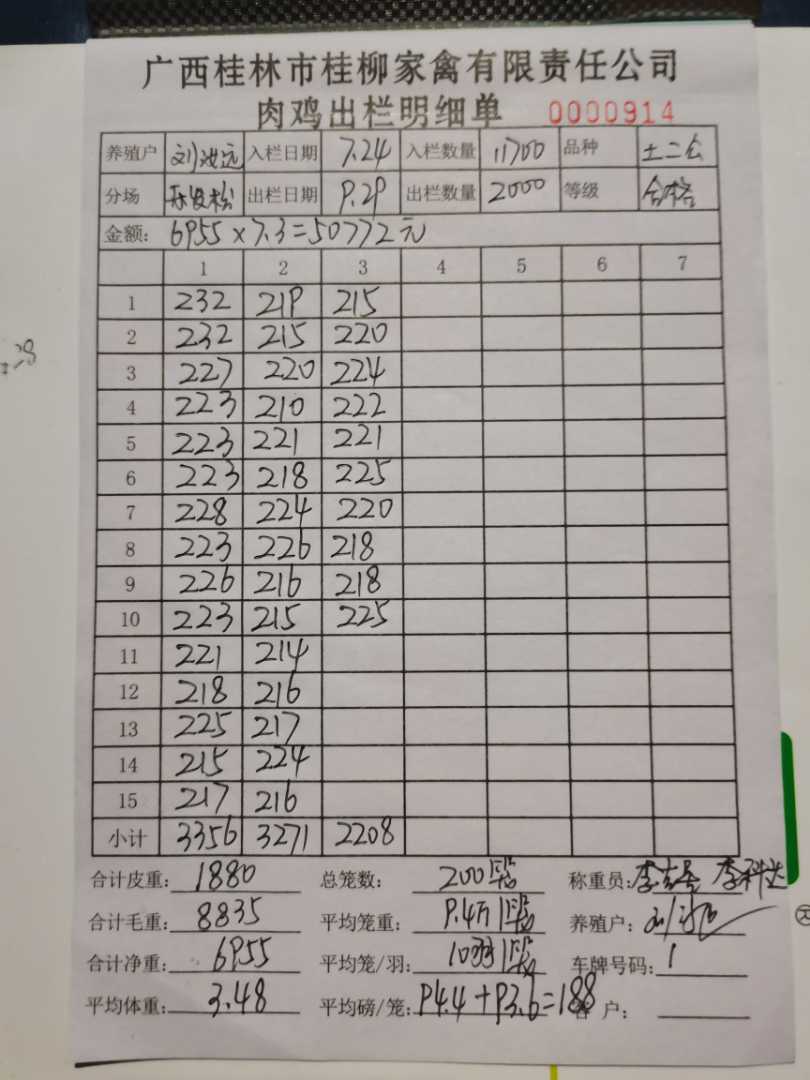 广西桂林市桂柳家禽有限责任公司
肉鸡出栏明细单 0000914
养殖户 入栏日期 7.24 入栏数量 11700 品种 土二公
分场 出栏日期 9.29 出栏数量 2000 等级 合格
金额: 6955×7.3=50772元
1 2 3 4 5 6 7
1 232 219 215
2 232 215 220
3 227 220 224
4 223 210 222
5 223 221 221
6 223 218 225
7 228 224 220
8 223 226 218
9 226 216 218
10 223 215 225
11 221 214
12 218 216
13 225 217
14 215 224
15 217 216
小计 3356 3271 2208
合计皮重: 1880 总笼数: 200 称重员:
合计毛重: 8835 平均笼重: 9.4斤 养殖户:
合计净重: 6955 平均笼/羽: 10羽 车牌号码: 1
平均体重: 3.48 平均磅/笼: 94.4+93.6=188 客户: